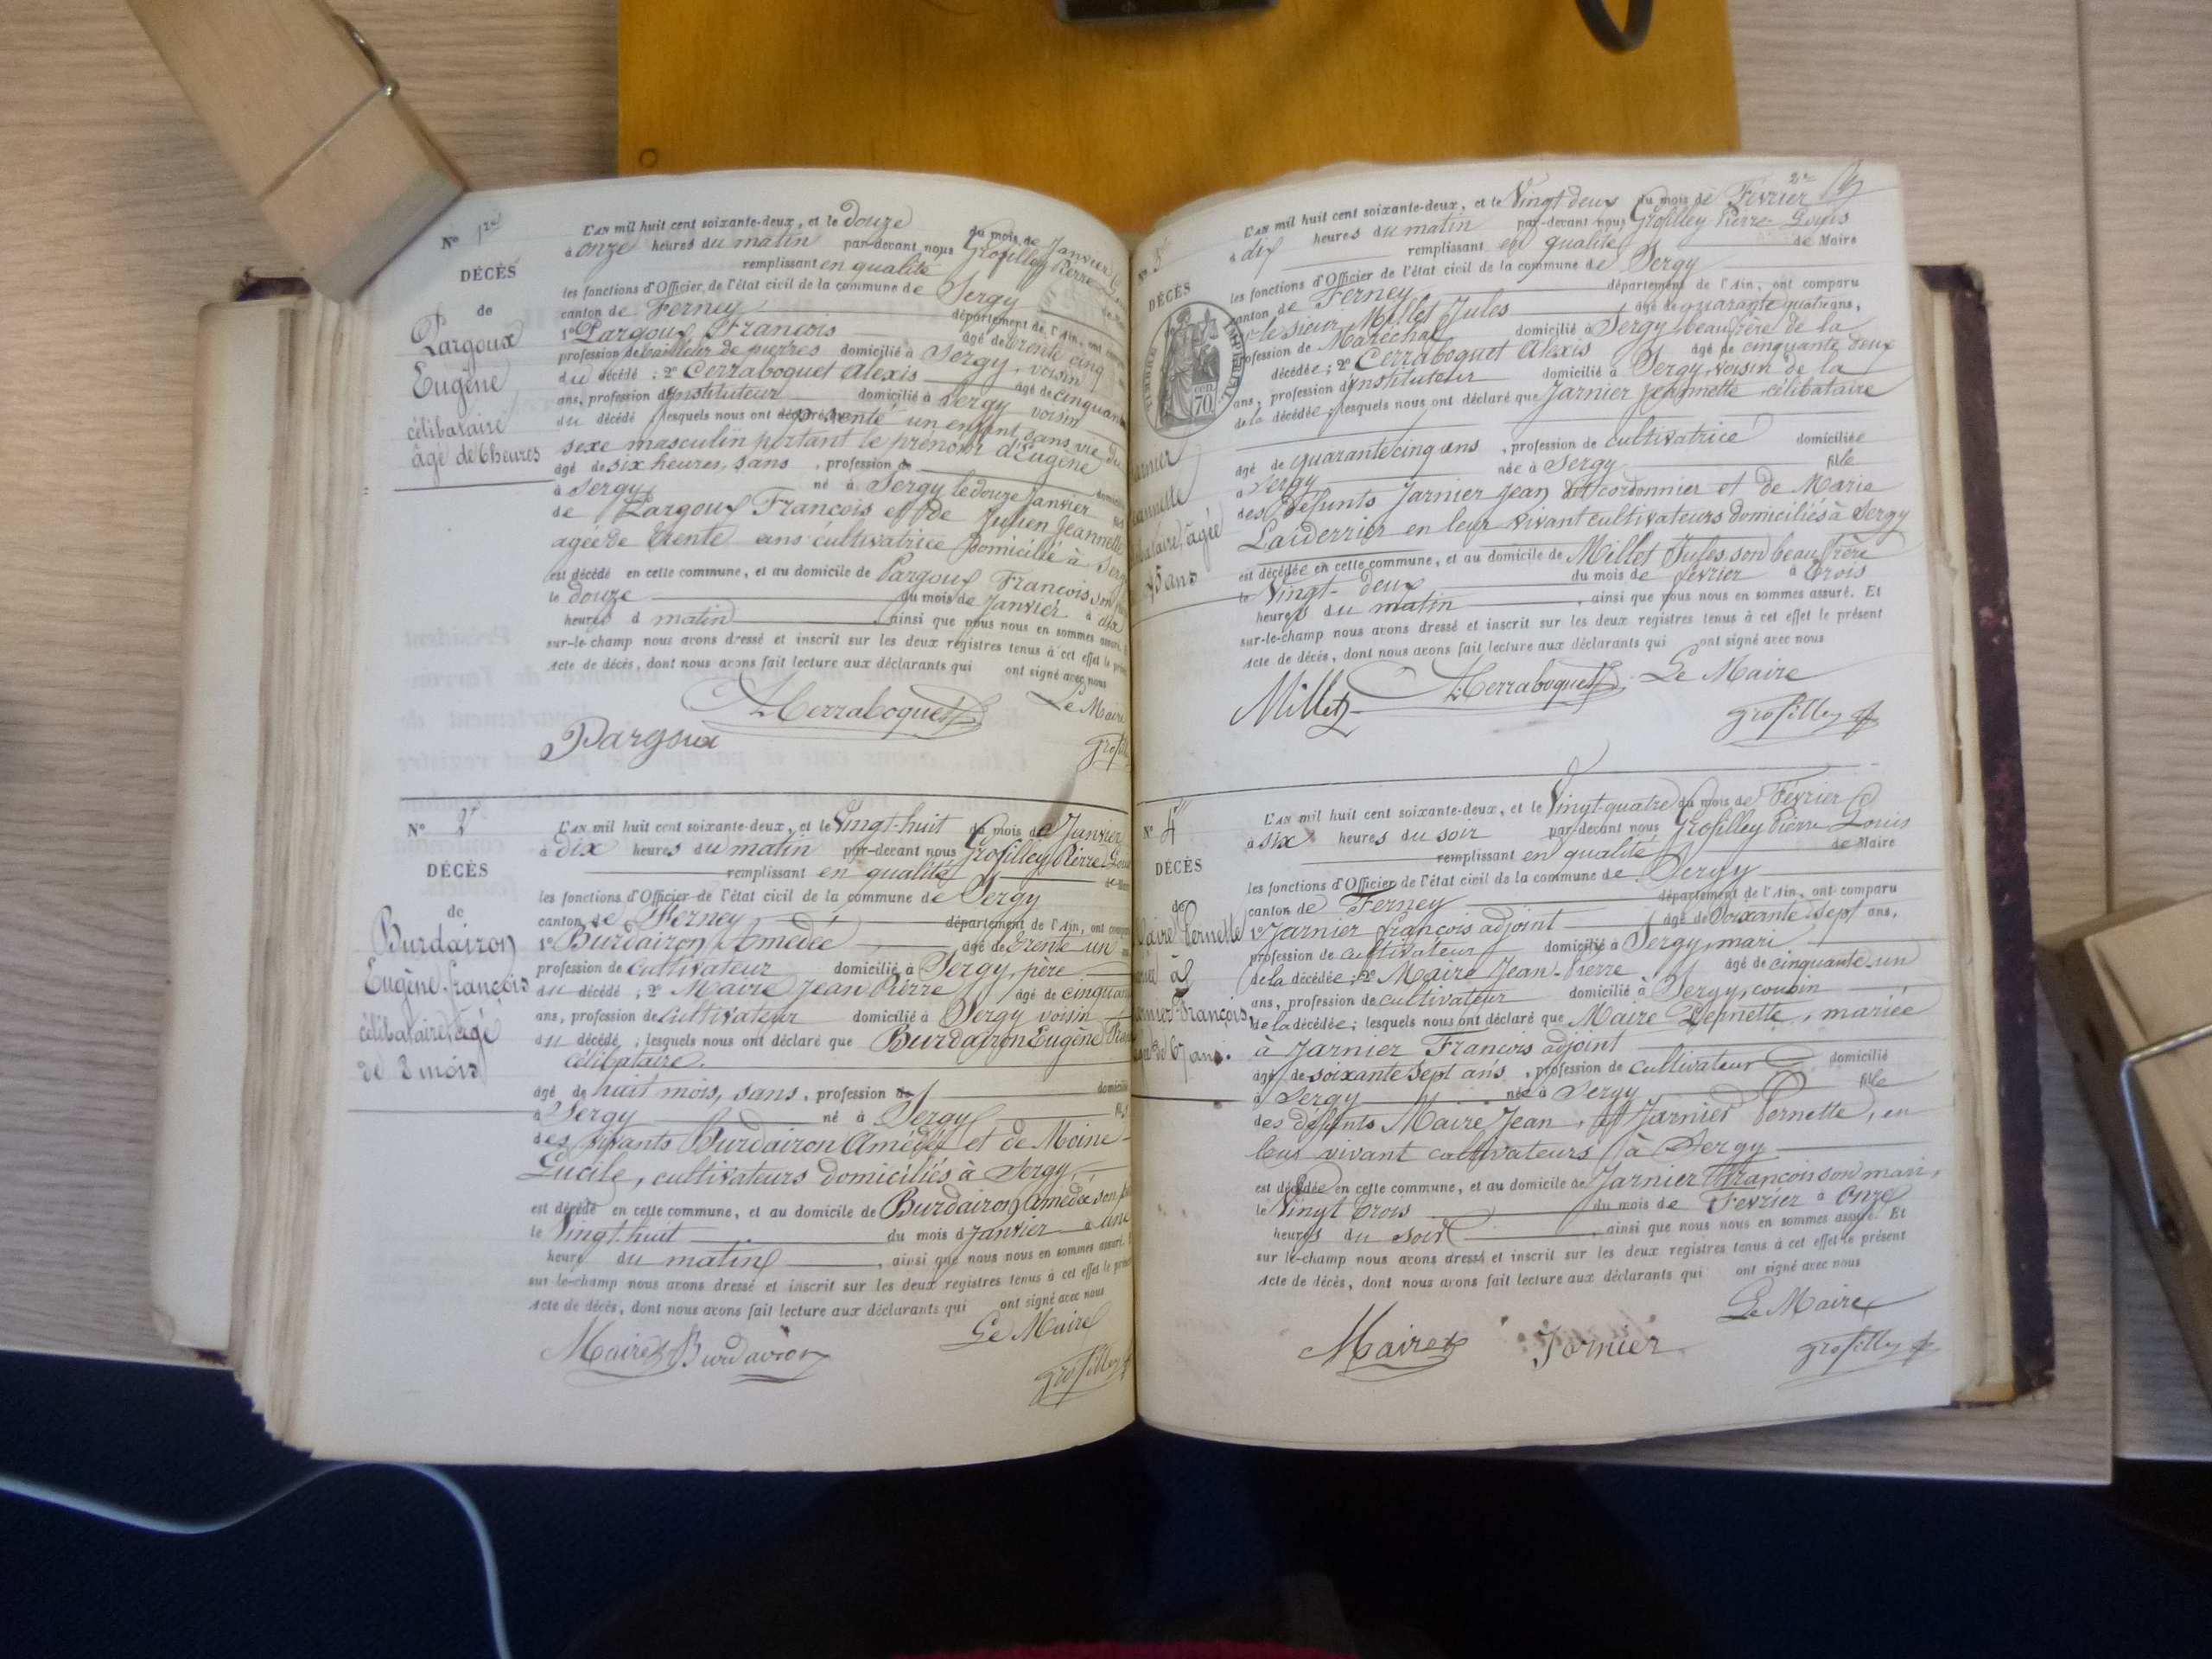 No 1er
DÉCÈS
de
Pargoux
Eugène
célibataire
âgé de 6 heures
L'AN mil huit cent soixante-deux, et le douze du mois de Janvier
à onze heures du matin par-devant nous Grosilley Pierre
remplissant en qualité
les fonctions d'Officier de l'état civil de la commune de Sergy
canton de Ferney département de l'Ain, ont
1o Pargoux François âgé de trente cinq
profession de tailleur de pierres domicilié à Sergy, voisin
du décédé ; 2o Cerraboquet Alexis âgé de cinquante
ans, profession d'Instituteur domicilié à Sergy voisin
du décédé lesquels nous ont présenté un enfant sans vie du
sexe masculin portant le prénom d'Eugène
âgé de six heures, sans , profession de
à Sergy né à Sergy le douze Janvier
de Pargoux François et de Julien Jeannette
agée de trente ans cultivatrice domicilié à Sergy
est décédé en cette commune, et au domicile de Pargoux François son
le douze du mois de Janvier à dix
heures d matin ainsi que nous nous en sommes assuré.
sur-le-champ nous avons dressé et inscrit sur les deux registres tenus à cet effet le
Acte de décès, dont nous avons fait lecture aux déclarants qui ont signé avec nous
Cerraboquet Le Maire
Pargoux
No 2
DÉCÈS
de
Burdairon
Eugène françois
célibataire, âgé
de 8 mois
L'AN mil huit cent soixante-deux, et le Vingt-huit du mois de Janvier
à dix heures du matin par-devant nous Grosilley Pierre Louis
remplissant en qualité
les fonctions d'Officier de l'état civil de la commune de Sergy
canton de Ferney département de l'Ain, ont
1o Burdairon Amédée âgé de trente un
profession de cultivateur domicilié à Sergy, père
du décédé ; 2o Maire Jean Pierre âgé de cinquante
ans, profession de Cultivateur domicilié à Sergy voisin
du décédé ; lesquels nous ont déclaré que Burdairon Eugène
célibataire.
âgé de huit mois, sans , profession de
à Sergy né à Sergy fils
des vivants Burdairon Amédée et de Moine
Lucile, cultivateurs domiciliés à Sergy,
est décédé en cette commune, et au domicile de Burdairon Amédée son
le Vingt-huit du mois d Janvier à une
heure du matin , ainsi que nous nous en sommes assuré.
sur le-champ nous avons dressé et inscrit sur les deux registres tenus à cet effet le
Acte de décès, dont nous avons fait lecture aux déclarants qui ont signé avec nous
Le Maire
Maire Burdairon
Grosilley
2e
No 3
DÉCÈS
TIMBRE IMPERIAL
70
L'AN mil huit cent soixante-deux, et le Vingt deux du mois de Février
à dix heures du matin par-devant nous Grosilley Pierre Louis
remplissant en qualité de Maire
les fonctions d'Officier de l'état civil de la commune de Sergy
canton de Ferney département de l'Ain, ont comparu
1o le sieur Millet Jules âgé de quarante quatre ans,
profession de Maréchal domicilié à Sergy, beau frère de la
décédée ; 2o Cerraboquet Alexis âgé de cinquante deux
ans, profession d'Instituteur domicilié à Sergy, voisin de la
de la décédée, lesquels nous ont déclaré que Jarnier Jeannette célibataire
âgé de quarante cinq ans , profession de cultivatrice domiciliée
à Sergy née à Sergy fille
des défunts Jarnier Jean dit cordonnier et de Marie
Laiderrier en leur vivant cultivateurs domiciliés à Sergy
est décédée en cette commune, et au domicile de Millet Jules, son beau frère
le Vingt-deux du mois de février à trois
heures du matin , ainsi que nous nous en sommes assuré. Et
sur-le-champ nous avons dressé et inscrit sur les deux registres tenus à cet effet le présent
Acte de décès, dont nous avons fait lecture aux déclarants qui ont signé avec nous
Millet Cerraboquet Le Maire
Grosilley
No 4
DÉCÈS
de
Pernette
François,
67 ans.
L'AN mil huit cent soixante-deux, et le Vingt-quatre du mois de Février
à six heures du soir par-devant nous Grosilley Pierre Louis
remplissant en qualité de Maire
les fonctions d'Officier de l'état civil de la commune de Sergy
canton de Ferney département de l'Ain, ont comparu
1o Jarnier François adjoint âgé de Soixante Sept ans,
profession de cultivateur domicilié à Sergy, mari
de la décédée ; 2o Maire Jean-Pierre âgé de cinquante-un
ans, profession de cultivateur domicilié à Sergy, cousin
de la décédée ; lesquels nous ont déclaré que Maire Pernette, mariée
à Jarnier François adjoint
âgé de soixante sept ans , profession de cultivateur domicilié
à Sergy née à Sergy fille
des défunts Maire Jean, et Jarnier Pernette, en
leur vivant cultivateurs à Sergy
est décédée en cette commune, et au domicile de Jarnier François son mari,
le Vingt trois du mois de Février à Onze
heures du Soir , ainsi que nous nous en sommes assuré. Et
sur le-champ nous avons dressé et inscrit sur les deux registres tenus à cet effet le présent
Acte de décès, dont nous avons fait lecture aux déclarants qui ont signé avec nous
Le Maire
Maire Jarnier
Grosilley